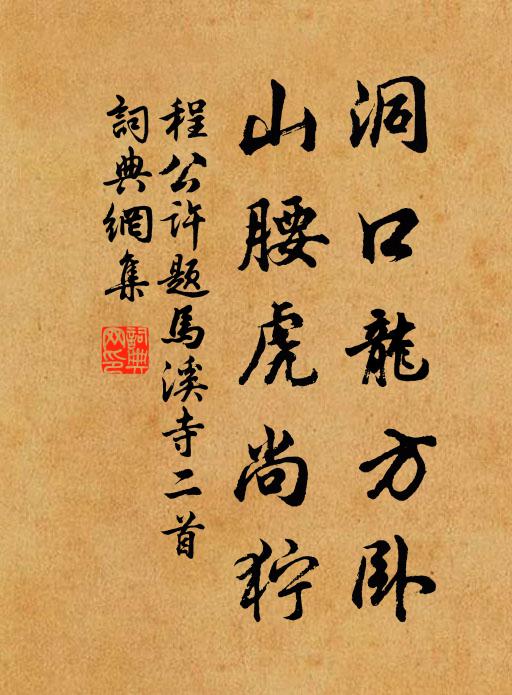 洞口龍方卧
山腰虎尚狞
程公许题馬溪寺二首
詞典網集
詞典網印